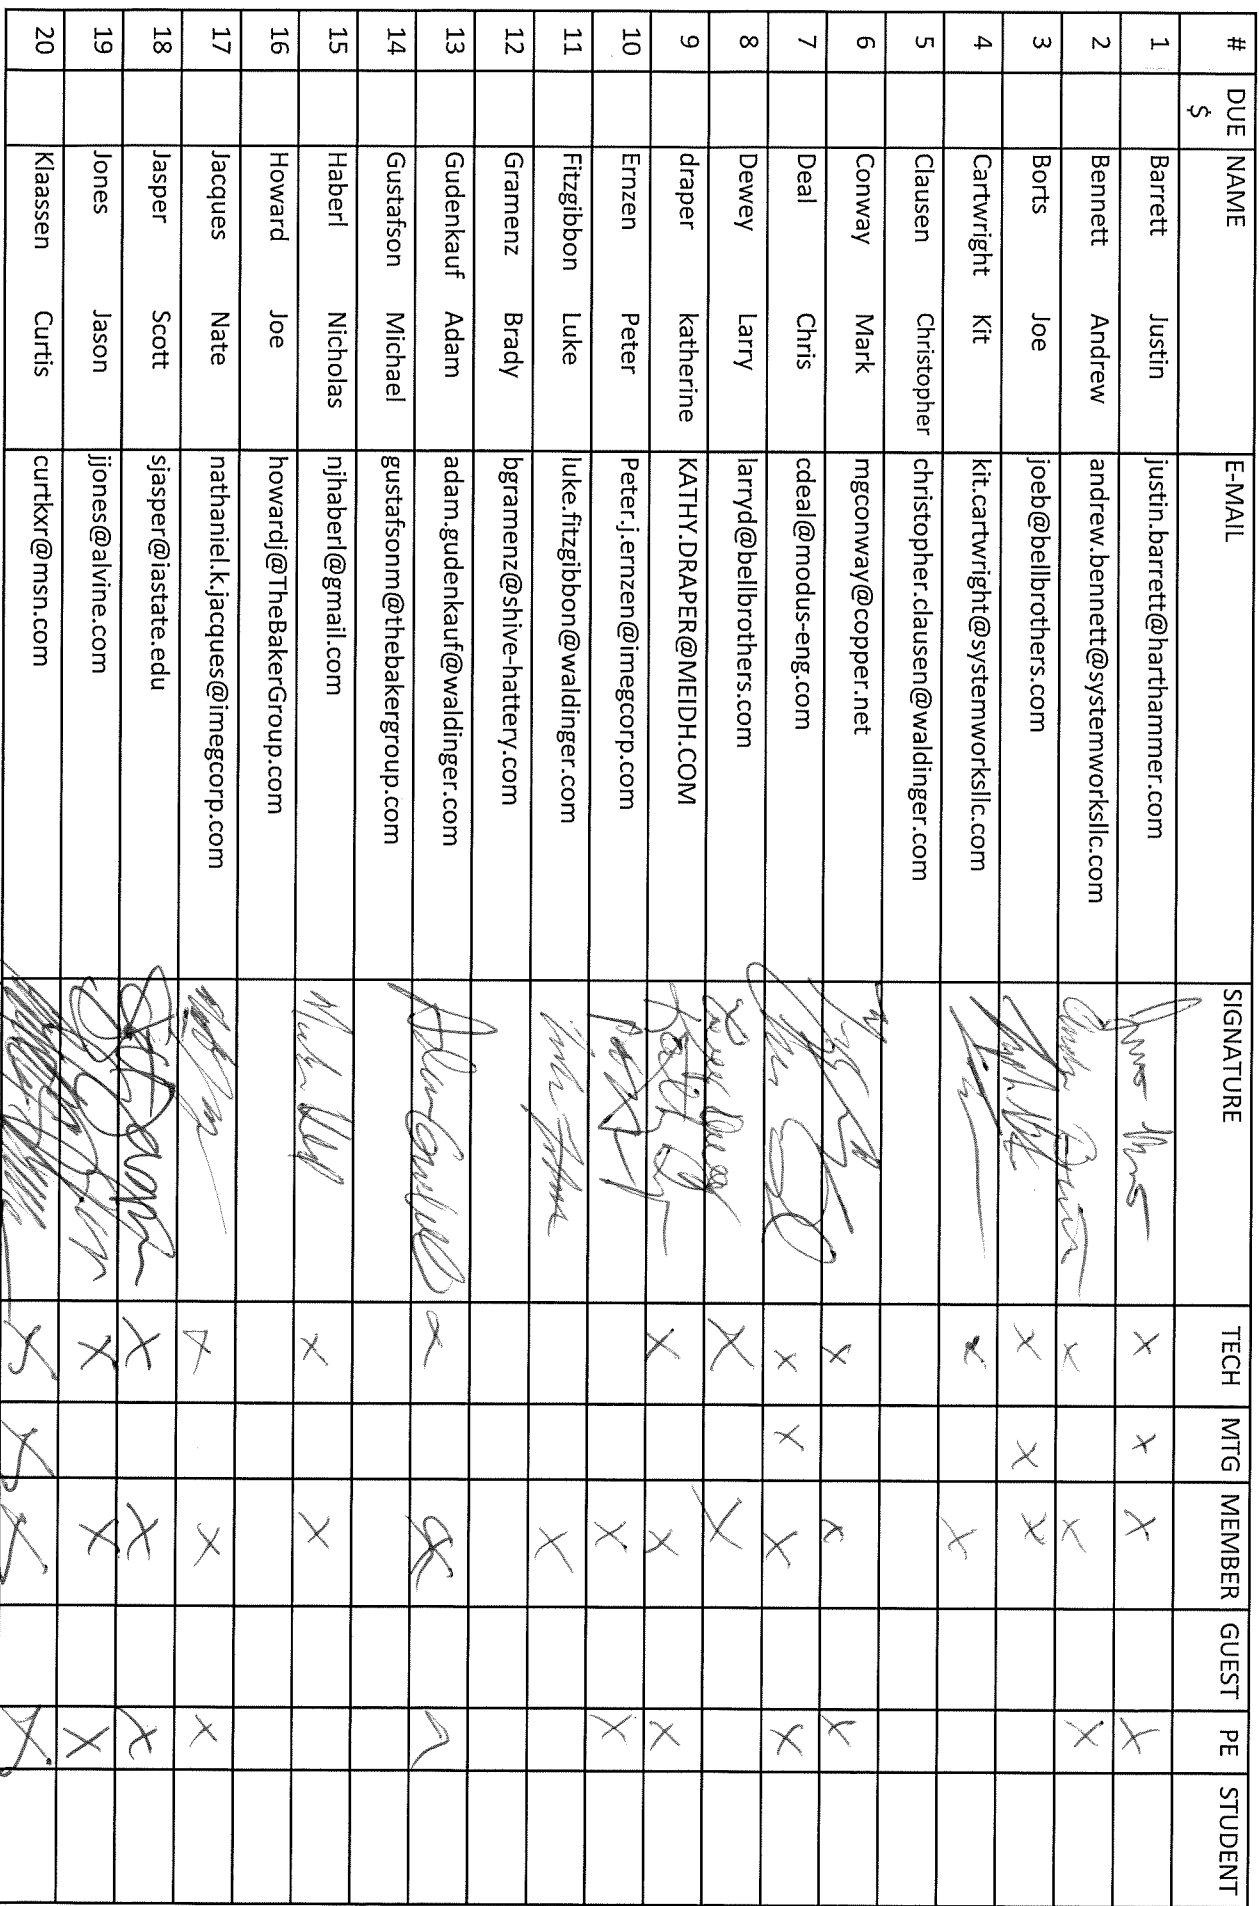 # DUE $ NAME E-MAIL SIGNATURE TECH MTG MEMBER GUEST PE STUDENT
1 Barrett Justin justin.barrett@harthammer.com X X X X
2 Bennett Andrew andrew.bennett@systemworksllc.com X X X
3 Borts Joe joeb@bellbrothers.com X X X
4 Cartwright Kit kit.cartwright@systemworksllc.com X X
5 Clausen Christopher christopher.clausen@waldinger.com
6 Conway Mark mgconway@copper.net X X X
7 Deal Chris cdeal@modus-eng.com X X X X
8 Dewey Larry larryd@bellbrothers.com X X
9 draper katherine KATHY.DRAPER@MEIDH.COM X X X
10 Ernzen Peter Peter.j.ernzen@imegcorp.com X X
11 Fitzgibbon Luke luke.fitzgibbon@waldinger.com X
12 Gramenz Brady bgramenz@shive-hattery.com
13 Gudenkauf Adam adam.gudenkauf@waldinger.com X X
14 Gustafson Michael gustafsonm@thebakergroup.com
15 Haberl Nicholas njhaberl@gmail.com X X
16 Howard Joe howardj@TheBakerGroup.com
17 Jacques Nate nathaniel.k.jacques@imegcorp.com X X X
18 Jasper Scott sjasper@iastate.edu X X X
19 Jones Jason jjones@alvine.com X X X
20 Klaassen Curtis curtkxr@msn.com X X X X